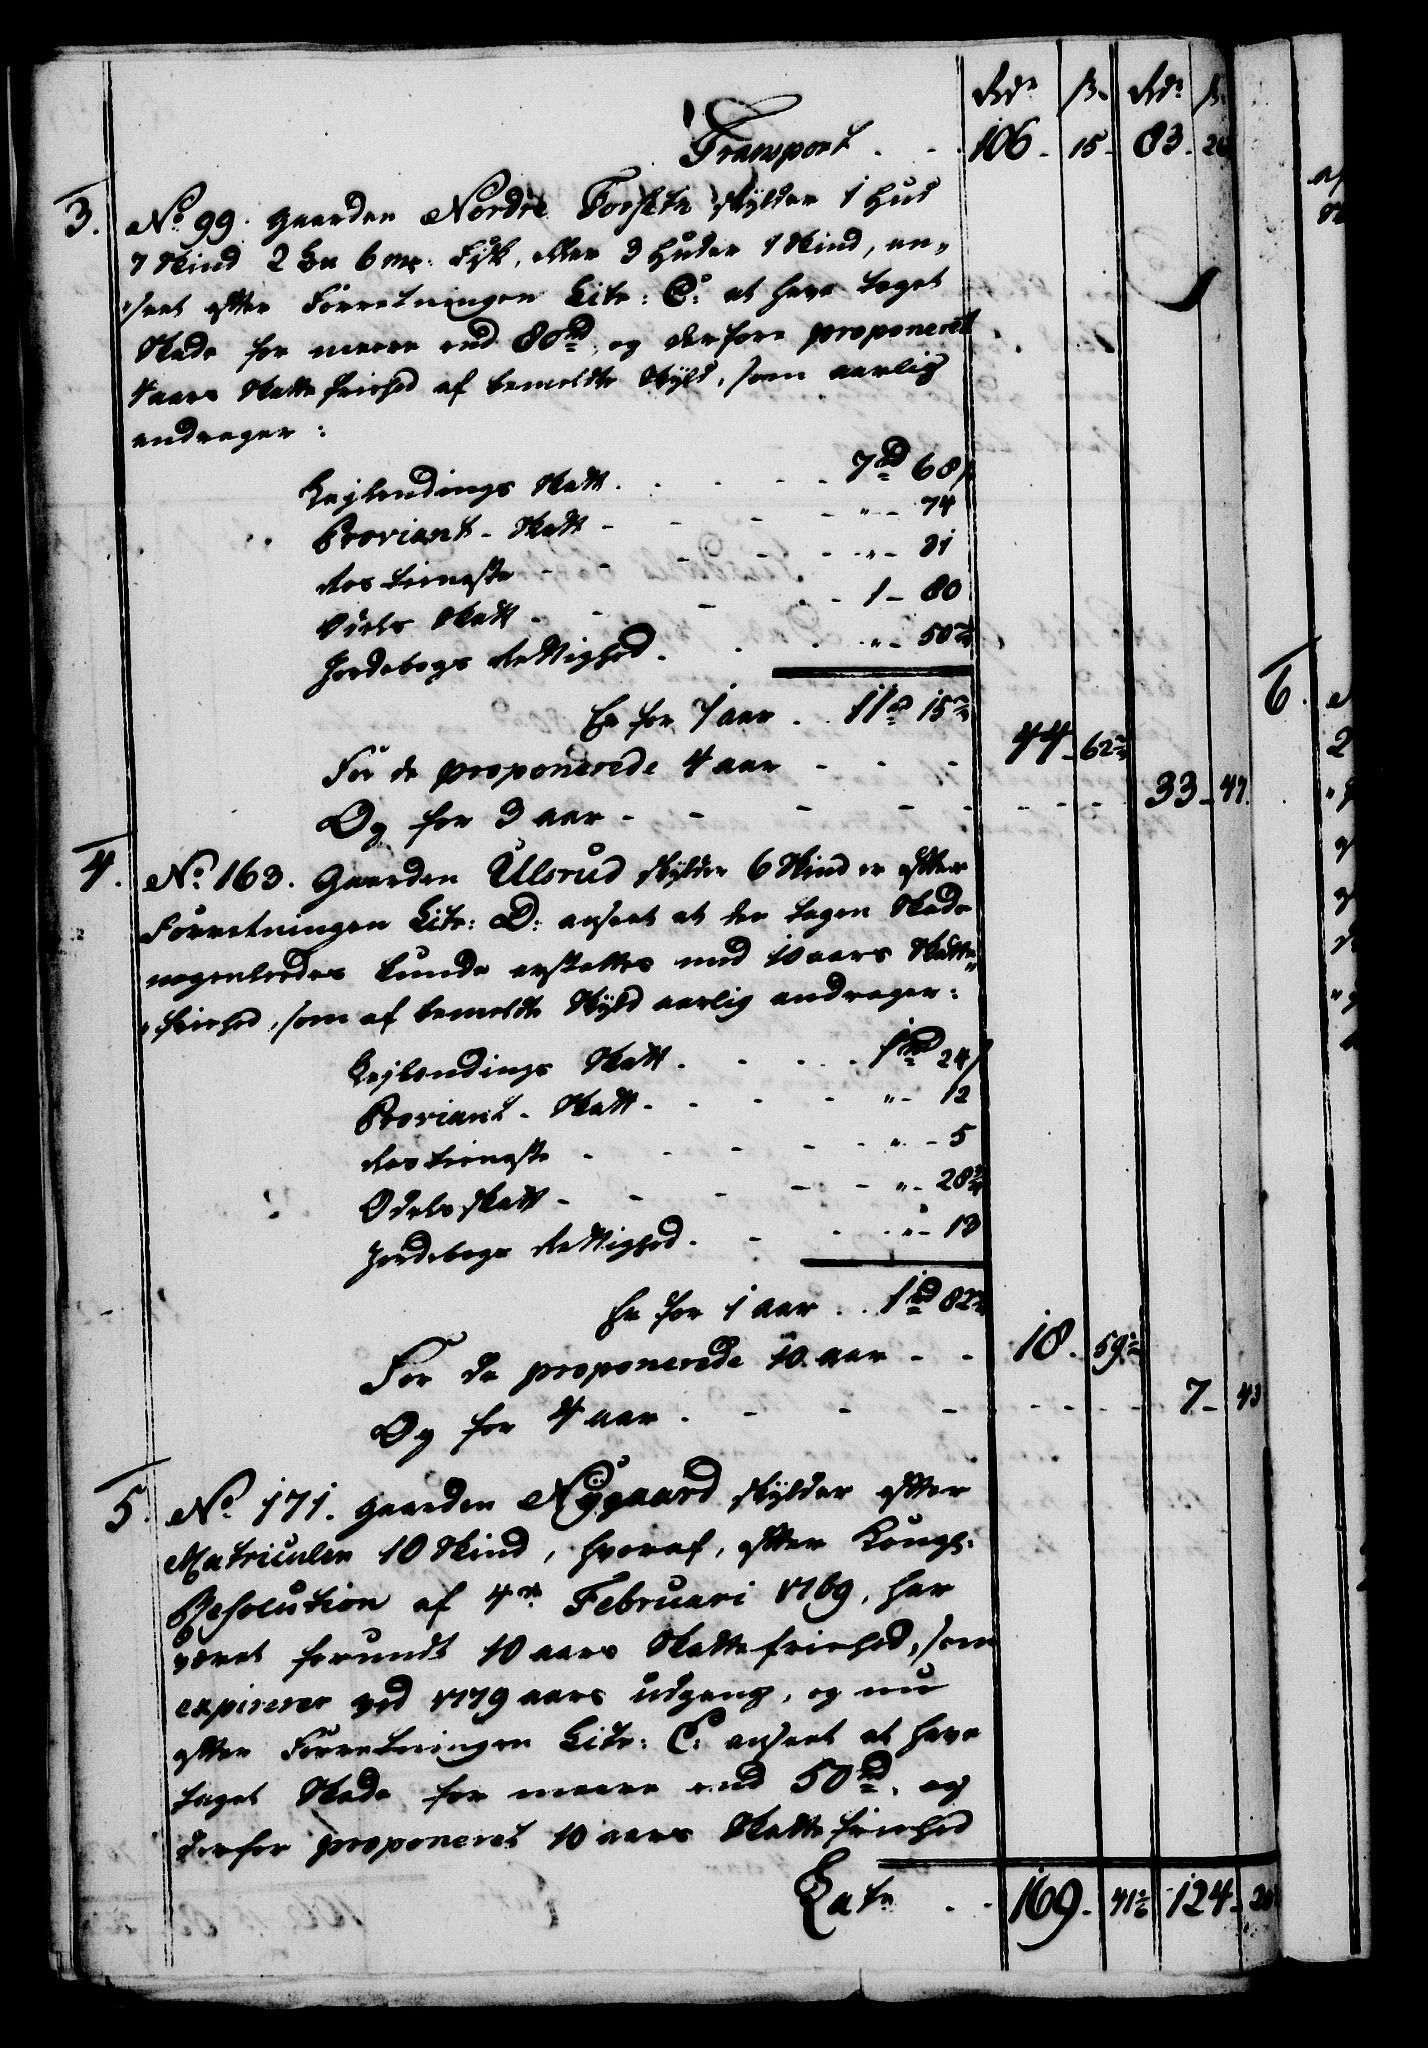 Rdr ß. Rdr ß.
Transport . . 106 . 15 . 83 . 20
3. No 99. Gaarden Nordre Forsete skylder 1 Hud
7 Skind 2 Bn 6 mk: Fisk, eller 3 Huder 1 Skind, an-
seet efter Forretningen Litr: C: at have taget
Skade for meere end 80 rd, og derfore proponeret
4 aars Skatte friehed af bemeldte Skyld, som aarlig
andrager:
Leylændings Skatt . . . . 7 rd 68 ß
Proviant-Skatt - - - - " - 74
Ros tieneste - - - - " - 31
Odels Skatt - - - - 1 - 80
Jordebogs Rettighed . . . " - 50
Er for 1 aar . . 11 rd 15
For de proponerede 4 aar - - - 44 - 62
Og for 3 aar - - - - - - - - 33 - 47.
4. No 163. Gaarden Ulsrud skylder 6 Skind er efter
Forretningen Litr: D: anseet at den tagen Skade
nogenledes kunde erstattes med 10 aars Skatte-
friehed, som af bemeldte Skyld aarlig andrager:
Leylændings Skatt . . . . 1 rd 24 ß
Proviant-Skatt - - - - " - 12
Ros tieneste - - - - " - 5
Odels Skatt - - - - " - 28
Jordebogs Rettighed . - . " - 13
Er for 1 aar . . 1 rd 82
For de proponerede 10 aar - - 18 . 59
Og for 4 aar . - - - - - - - 7 - 43
5. No 171. Gaarden Nygaard skylder efter
Matriculen 10 Skind, hvoraf, efter Kongl:
Resolution af 4de Februari 1769, har
været forundt 10 aars Skatte friehed, som
expirerer ved 1779 aars udgang, og nu
efter Forretningen Litr: E: anseet at have
taget Skade for meere end 50 rd, og
derfor proponeret 10 aars Skatte friehed
Late . . 169 . 41 124 - 20
6.